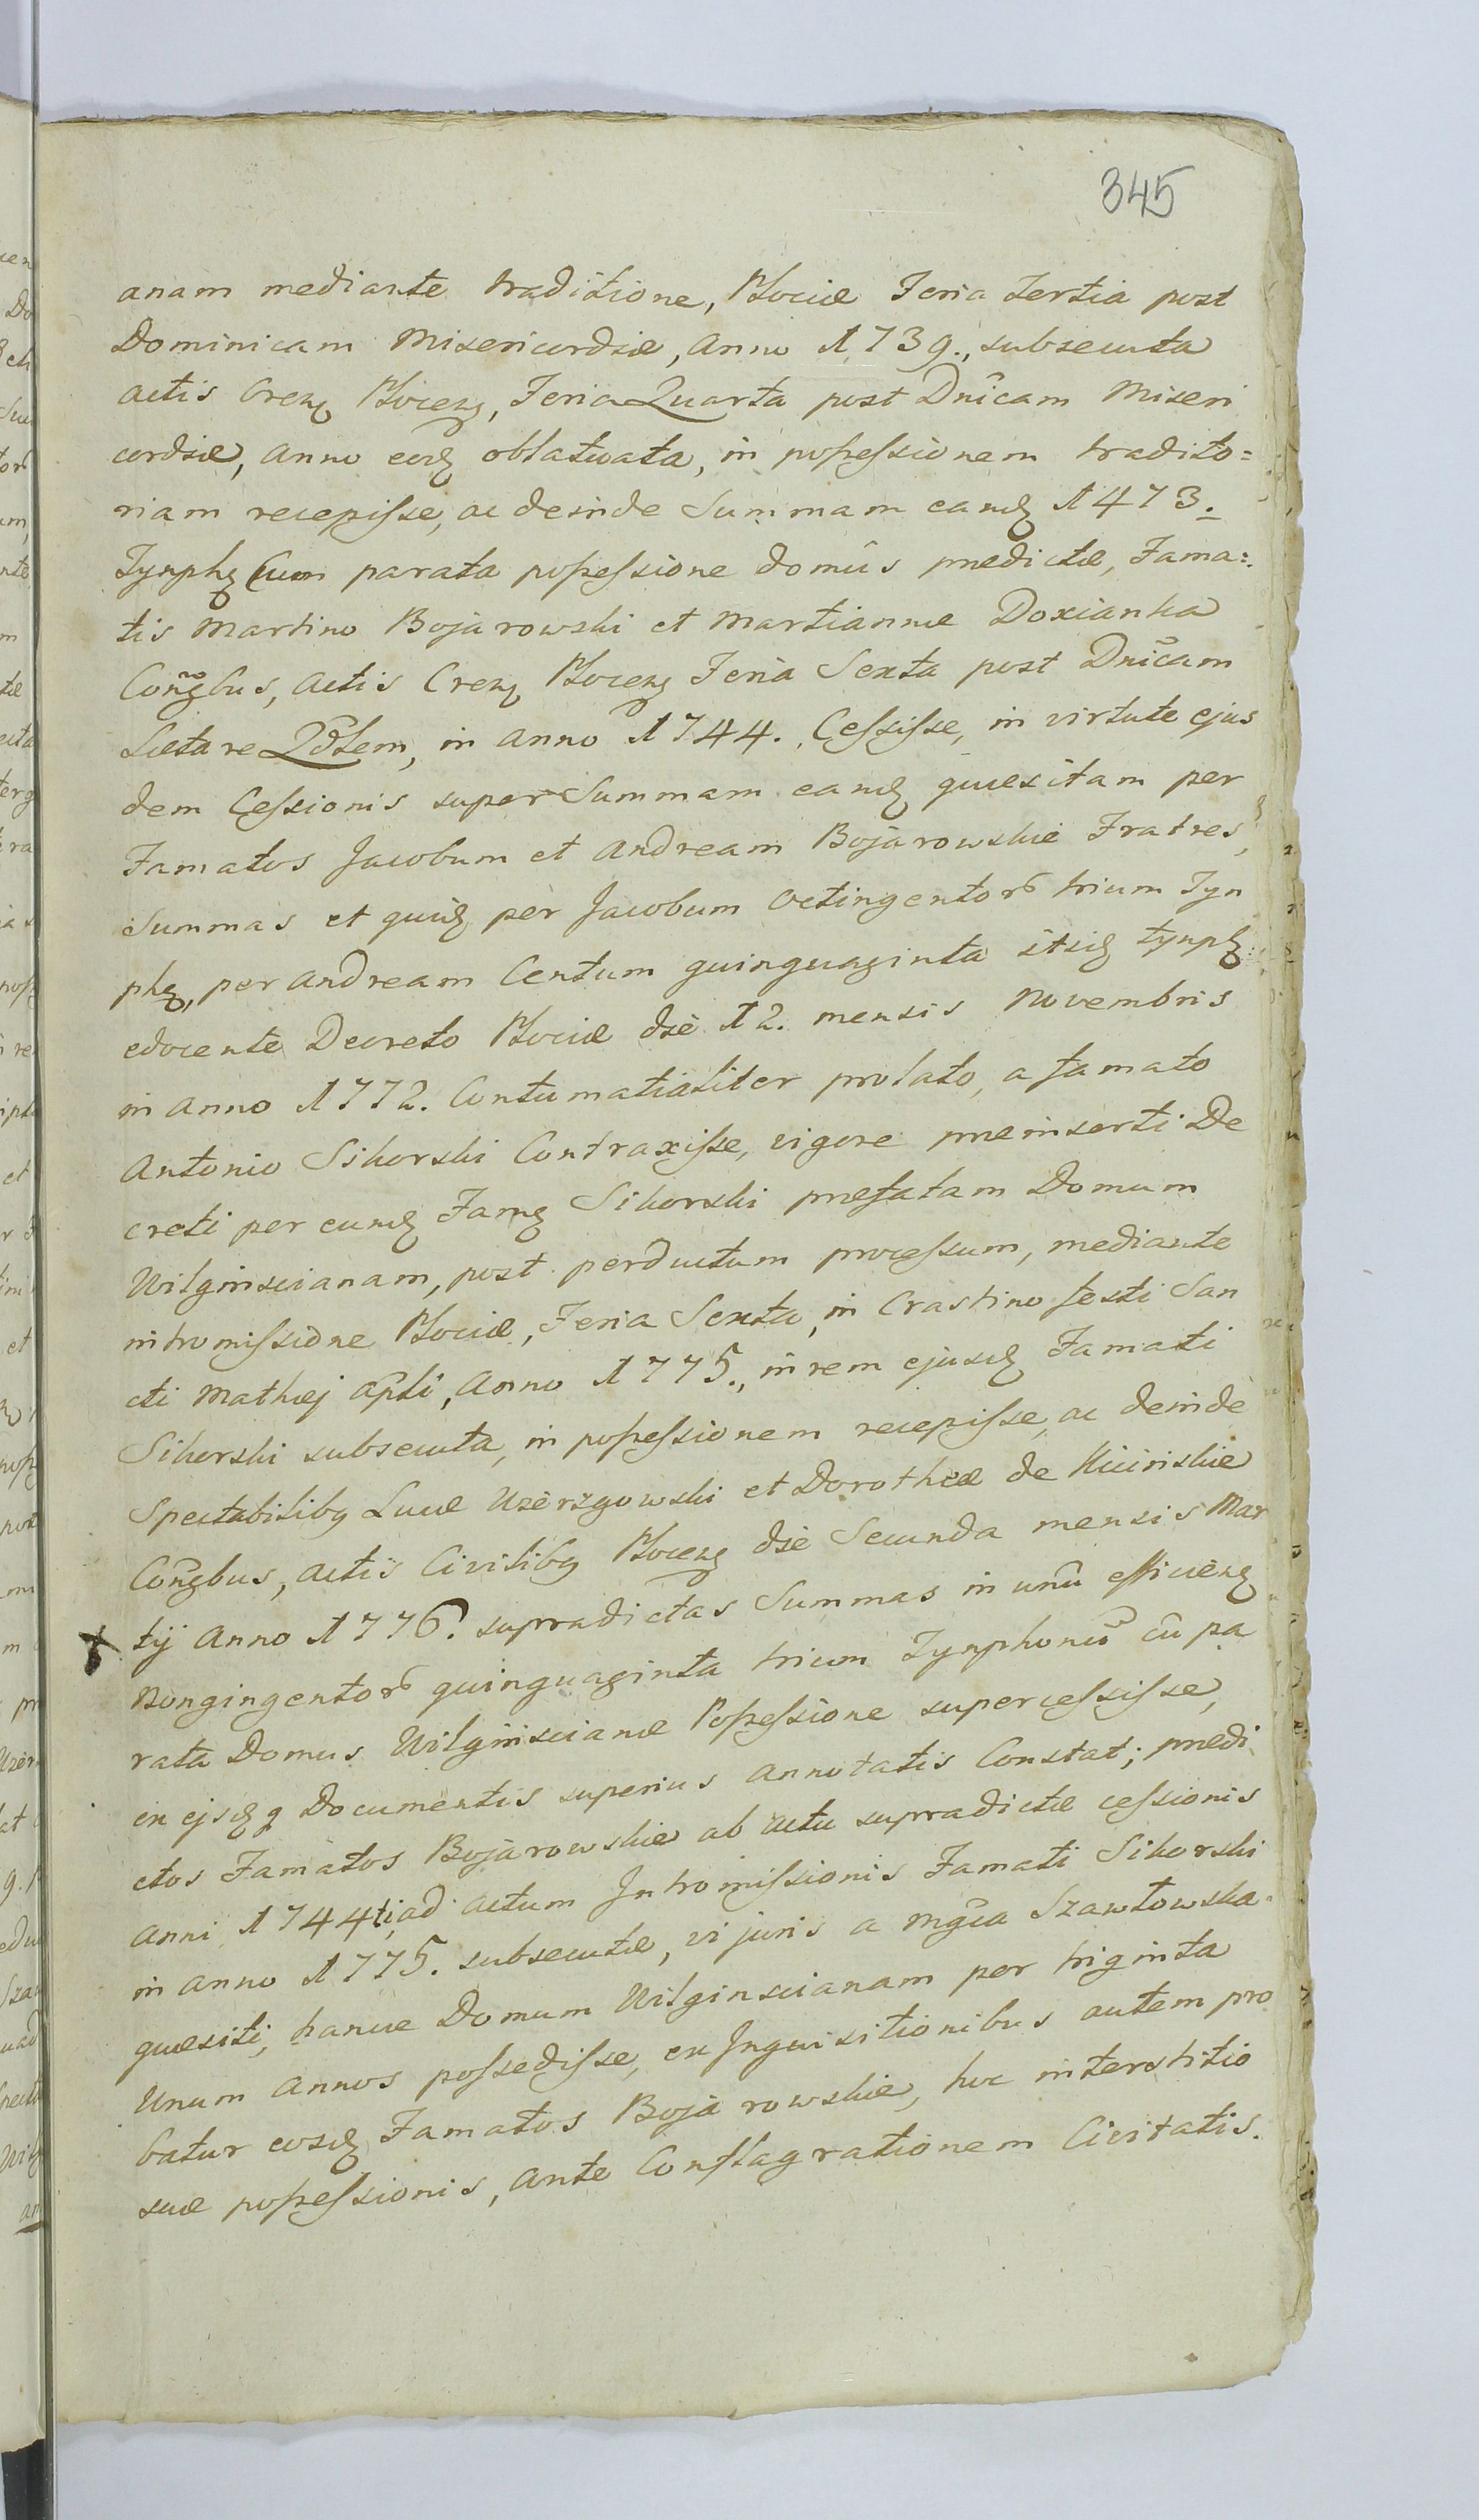 345
anam mediante traditione, Plociæ Feria tertia post
Dominicam Misericordiæ, Anno 1739., subsecuta
actis Crenꝫ Plocenꝫ, Feria Quarta post Dnĩcam Miseri
cordiæ, Anno eodꝫ oblatwata, in possessionem tradito=
riam recepisse, ac deinde Summam eandꝫ 1473.
Tynphꝫ Cum parata possessione domûs prædictæ, Fama=
tis Martino Bojarowski et Martiannæ Doxianka
Conĝbus, Actis Crenꝫ Plocenꝫ Feria Sexta post Dnĩcam
Lætare Qdłem, in Anno 1744. Cessisse, in virtute ejus
dem Cessionis super Summam eandꝫ quæsitam per
Famatos Jacobum et Andream Bojarowskie Fratres,
Summas et quidꝫ per Jacobum Octingentorũ trium Tyn
phꝫ, per Andream Centum quinquaginta itidꝫ tynphꝫ
edocente Decreto Plociæ die 12. mensis Novembris
in Anno 1772. Contumatialiter prolato, a famato
Antonio Sikorski Contraxisse, vigore præinserti De
creti per eundꝫ Famꝫ Sikorski præfatam Domum
Wilginscianam, post perductum processum, mediante
intromissione Plociæ, Feria Sexta, in Crastino festi San
cti Mathæj Apłi, Anno 1775., in rem ejusdꝫ Famati
Sikorski subsecuta, in possessionem recepisse, ac deinde
Spectabilibꝫ Lucæ Uzèrzgowski et Dorotheæ de Kicinskie
Conĝbus, Actis Civilibꝫ Plocenꝫ die Secunda mensis Mar
tij Anno 1776. supradictas Summas in unũ efficienꝫ
Nongingentorũ quinquaginta trium Tynphonũ cũ pa
rata Domus Wilginscianæ Possessione supercessisse,
ex ejsdꝫ q Documentis superius annotatis Constat; prædi
ctos Famatos Bojarowskie ab actu supradictæ cessionis
Anni 1744ti, ad actum Intromissionis Famati Sikorski
in Anno 1775. subsecutæ, vi juris a Mgĉa Szawłowska
quæsiti, hancce Domum Wilginscianam per triginta
Unum Annos possedisse, ex Inquisitionibus autem pro
batur eosdꝫ Famatos Bojarowskie, hoc interstitio
suæ possessionis, Ante Conflagrationem Civitatis.